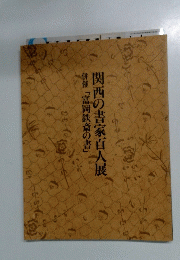 関西の書家百人展
併催「富岡鉄斎の書」